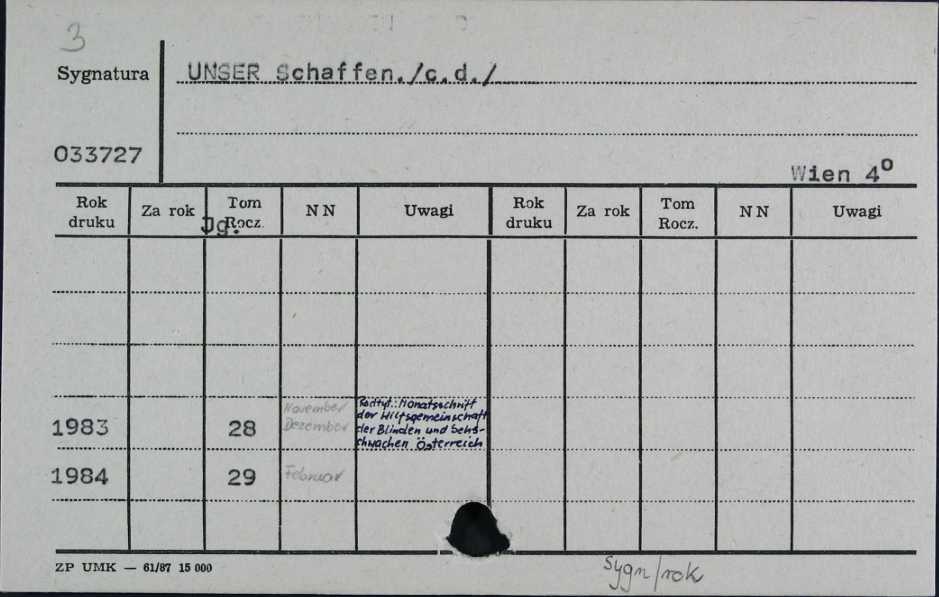 3
Sygnatura
UNSER Schaffen./c.d./
033727
Wien 4⁰
Rok druku Za rok Tom Rocz. NN Uwagi Rok druku Za rok Tom Rocz. NN Uwagi
Jg.
November
Podtyt.: Monatsschrift
der Hilfsgemeinschaft
1983 28 Dezember der Blinden und Sehs-
chwachen Österreich
1984 29 Februar
ZP UMK — 61/87 15 000
sygn/rok